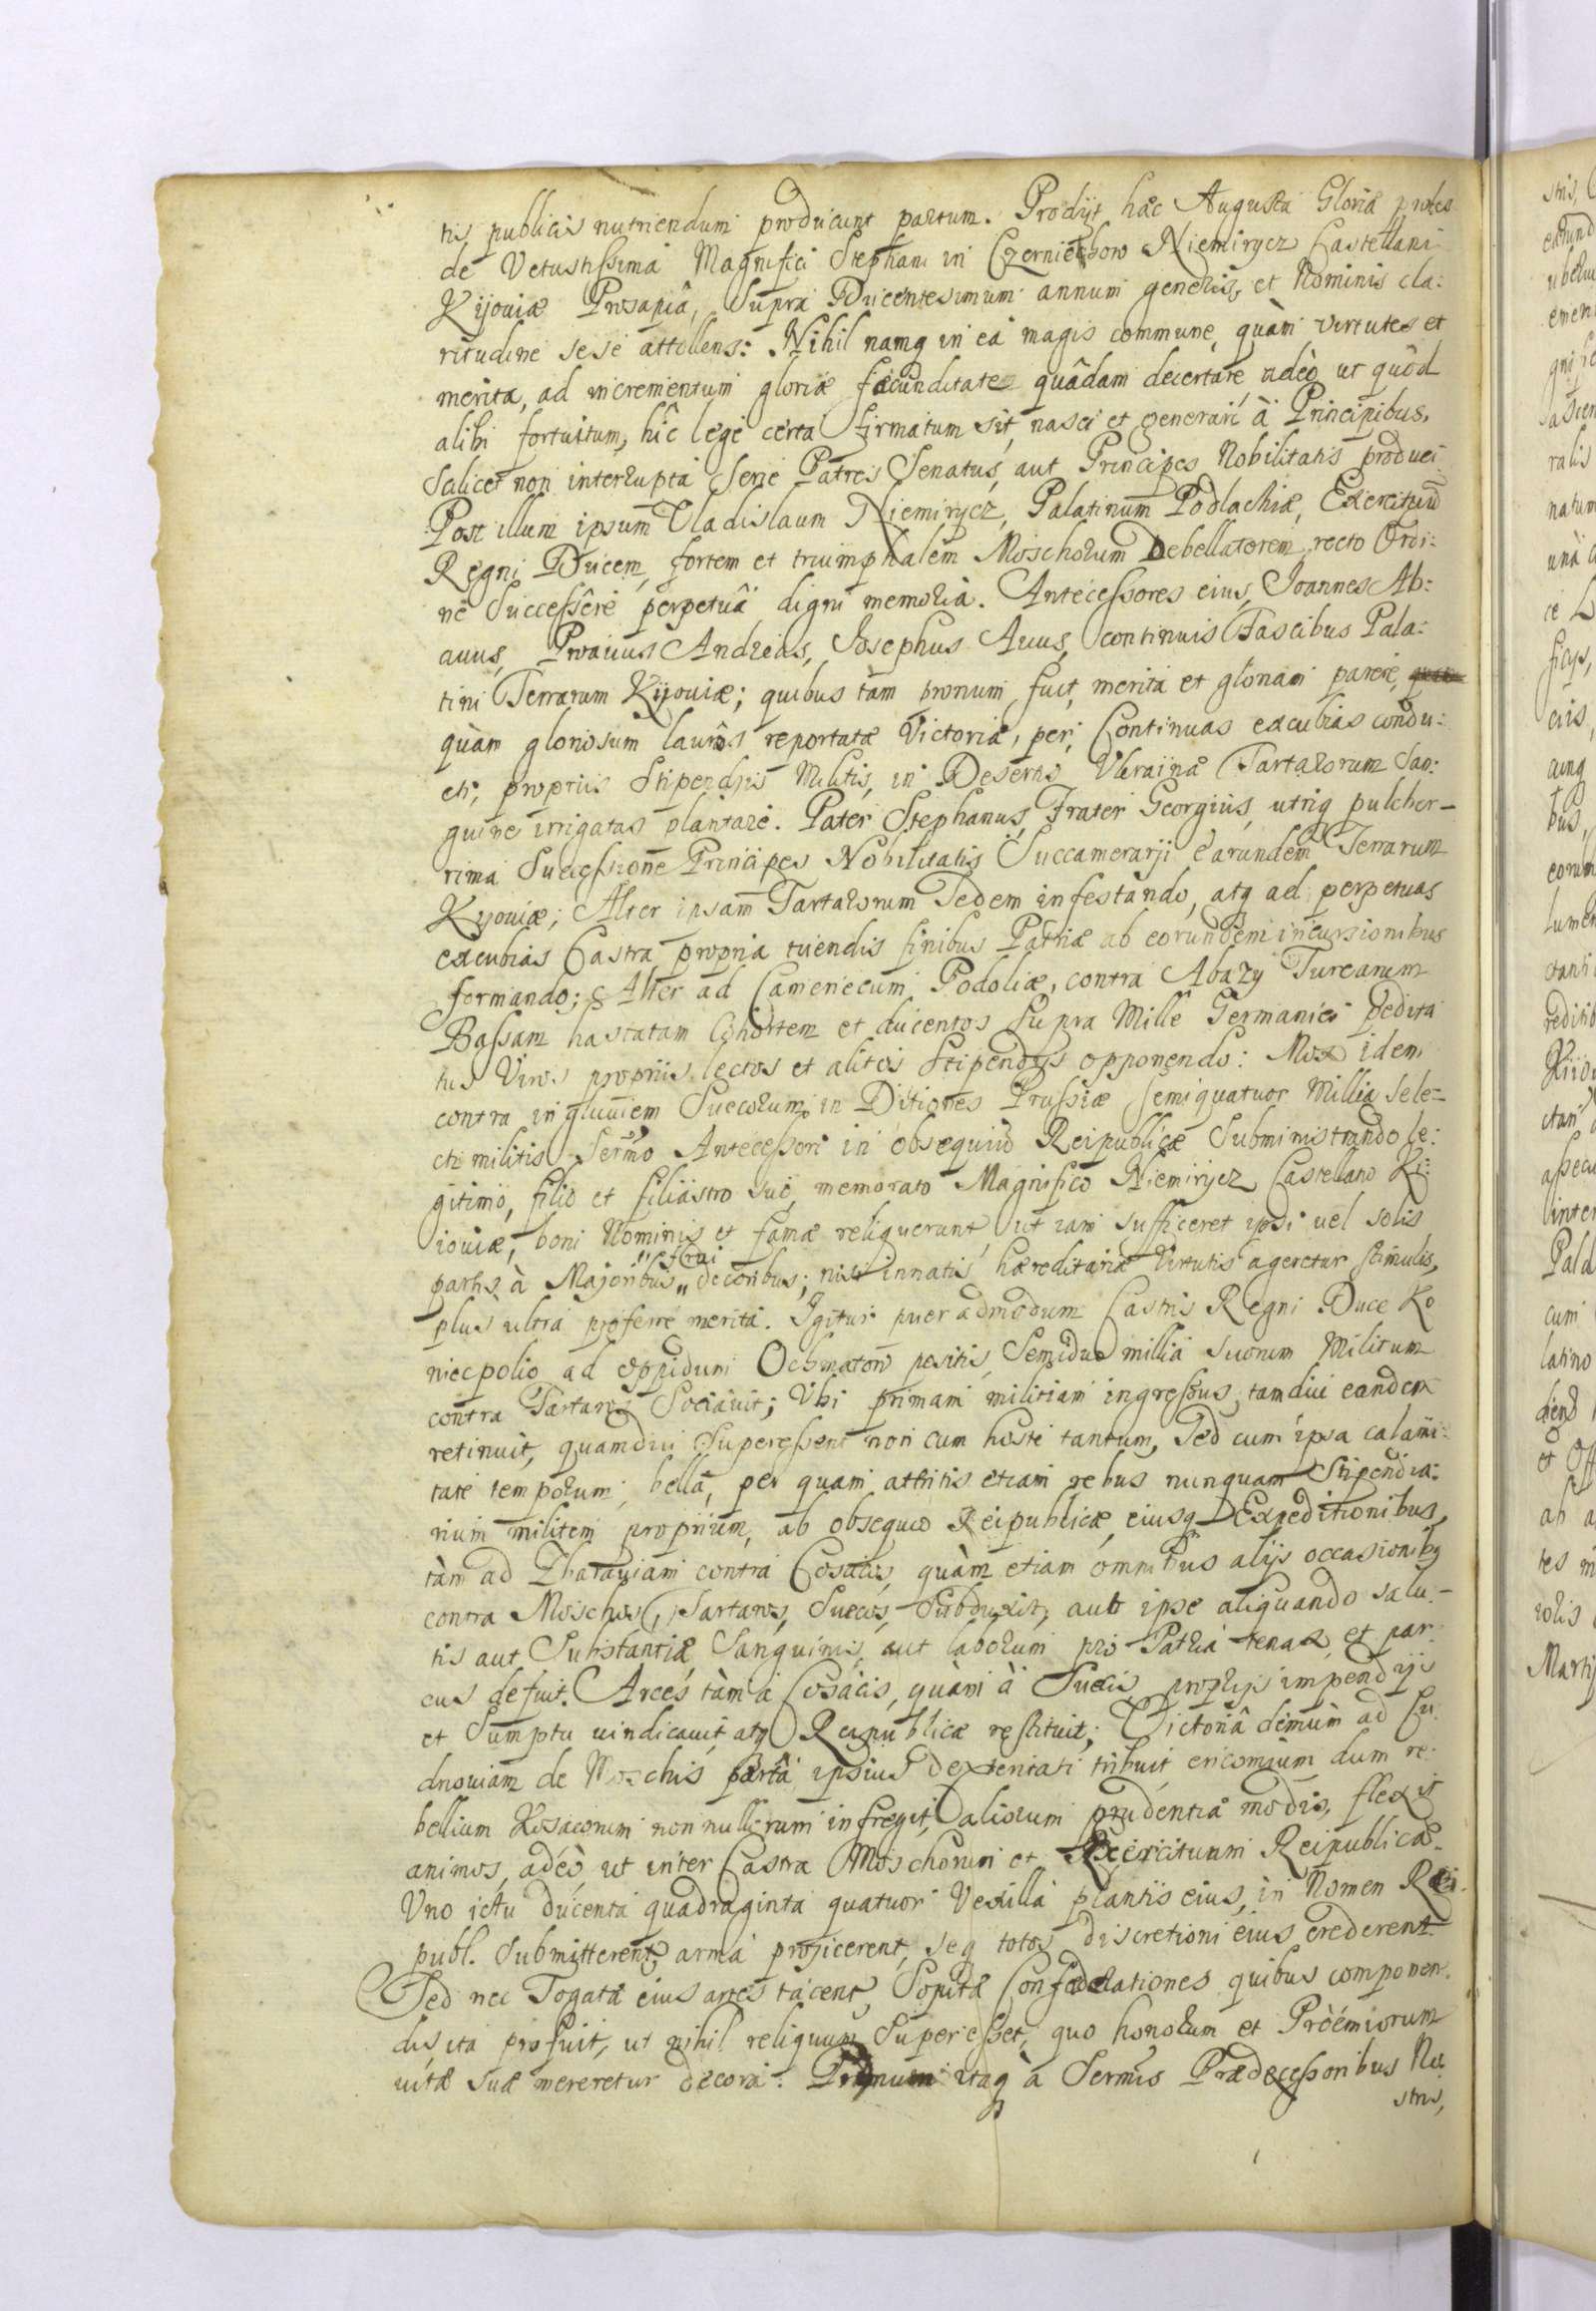 tis publicis nutriendum producunt partum. Prodijt hæc Augusta Gloriæ proles
de Vetustissima Magnifici Stephani in Czerniechow Niemirycz Castellani
Kijouiæ Prosapiâ, Supra Ducentesimum annum generis, et Nominis cla:
ritudine sese attollens: Nihil namq in ea magis commune, quàm virtutes et
merita, ad incrementum gloriæ fæcunditate quâdam decertare, adeò ut quod
alibi fortuitum, hîc lege certa firmatum sit, nasci et generari à Principibus,
Scilicet non interrupta Serie Patres Senatus, aut Principes Nobilitatis produci.
Post illum ipsum Vladislaum Niemirycz, Palatinum Podlachiæ, Exercituũ
Regni Ducem, fortem et triumphalem Moschorum Debellatorem, recto Ordi:
ne Successêre perpetuâ digni memoriâ. Antecessores eius, Joannes Ab:
auus, Proauus Andreas, Josephus Auus, continuis Fascibus Pala:
tini Terrarum Kijouiæ; quibus tam pronum fuit, merita et gloriam parere,
quàm gloriosum lauros reportatæ Victoriæ, per Continuas excubias condu:
cti, propriis Stipendijs Militis, in Desertis Vkrainæ Tartarorum San:
guine irrigatas plantare. Pater Stephanus, Frater Georgius, utriq pulcher-
rima Successione Principes Nobilitatis Succamerarji earundem Terrarum
Kyouiæ; Alter ipsam Tartarorum Sedem infestando, atq ad perpetuas
excubias Castra propria tuendis finibus Patriæ ab eorundem incursionibus
formando; Alter ad Camenecum Podoliæ, contra Abazy Turcarum
Bassam hastatam Cohortem et ducentos supra Mille Germanici pedita
tus Viros propriis lectos et alitos Stipendijs opponendo: Mox idem
contra ingluuiem Suecorum in Ditiones Prussiæ semiquatuor Millia sele=
cti militis Sermo Antecessori in obsequiũ Reipublicæ Subministrando le:
gitimo, filio et filiastro suo, memorato Magnifico Niemirycz Castellano Ki:
iouiæ, boni Nominis et famæ reliquerunt, ut iam sufficeret ipsi uel solis
frui
partis à Majoribus,, decoribus; nisi innatis hæreditariæ Virtutis ageretur stimulis,
plus ultra proferre merita. Igitur puer admodum Castris Regni Duce Ko
niecpolio ad oppidum Ochmatow positis, Semiduo millia suorum Militum
contra Tartaros Sociauit; Vbi primam militiam ingressus, tamdiu eandem
retinuit, quamdiu Superessent non cum hoste tantum, Sed cum ipsa calami:
tate temporum, bella, per quam attritis etiam rebus nunquam Stipendia:
rium militem proprium, ab obsequio Reipublicæ, eiusq Expeditionibus,
tàm ad Bataviam contra Cosacos, quàm etiam omnibus alijs occasionibq
contra Moschos, Tartaros, Suecos, Subduxit, aut ipse aliquando salu-
tis aut Substantiæ Sanguinis, aut laborum pro Patria tenax et par:
cus defuit. Arces tàm à Cosacis, quàm à Suecis proprijs impendijs
et Sumptu uindicauit atq Reipublicæ restituit; Victoriâ demùm ad Cu:
dnouiam de Moschis partâ ipsius dexteritati tribuit encomium, dum re:
bellium Kosacorum nonnullorum infregit, aliorum prudentiæ modis, flexit
animos, adeò, ut inter Castra Moschorum et Exercituum Reipublicæ
Vno ictu ducenta quadraginta quatuor Vexilla plantis eius, in Nomen Rei-
publ. Submitterent, arma projicerent, seq totos discretioni eius crederent.
Sed nec Togatæ eius artes tacent, Sopitæ Confœderationes quibus componen:
dis ita profuit, ut nihil reliquum Superesset, quo honorum et Proemiorum
uitæ suæ mereretur decora. Primum itaq à Sermis Prædecessoribus No
stris,